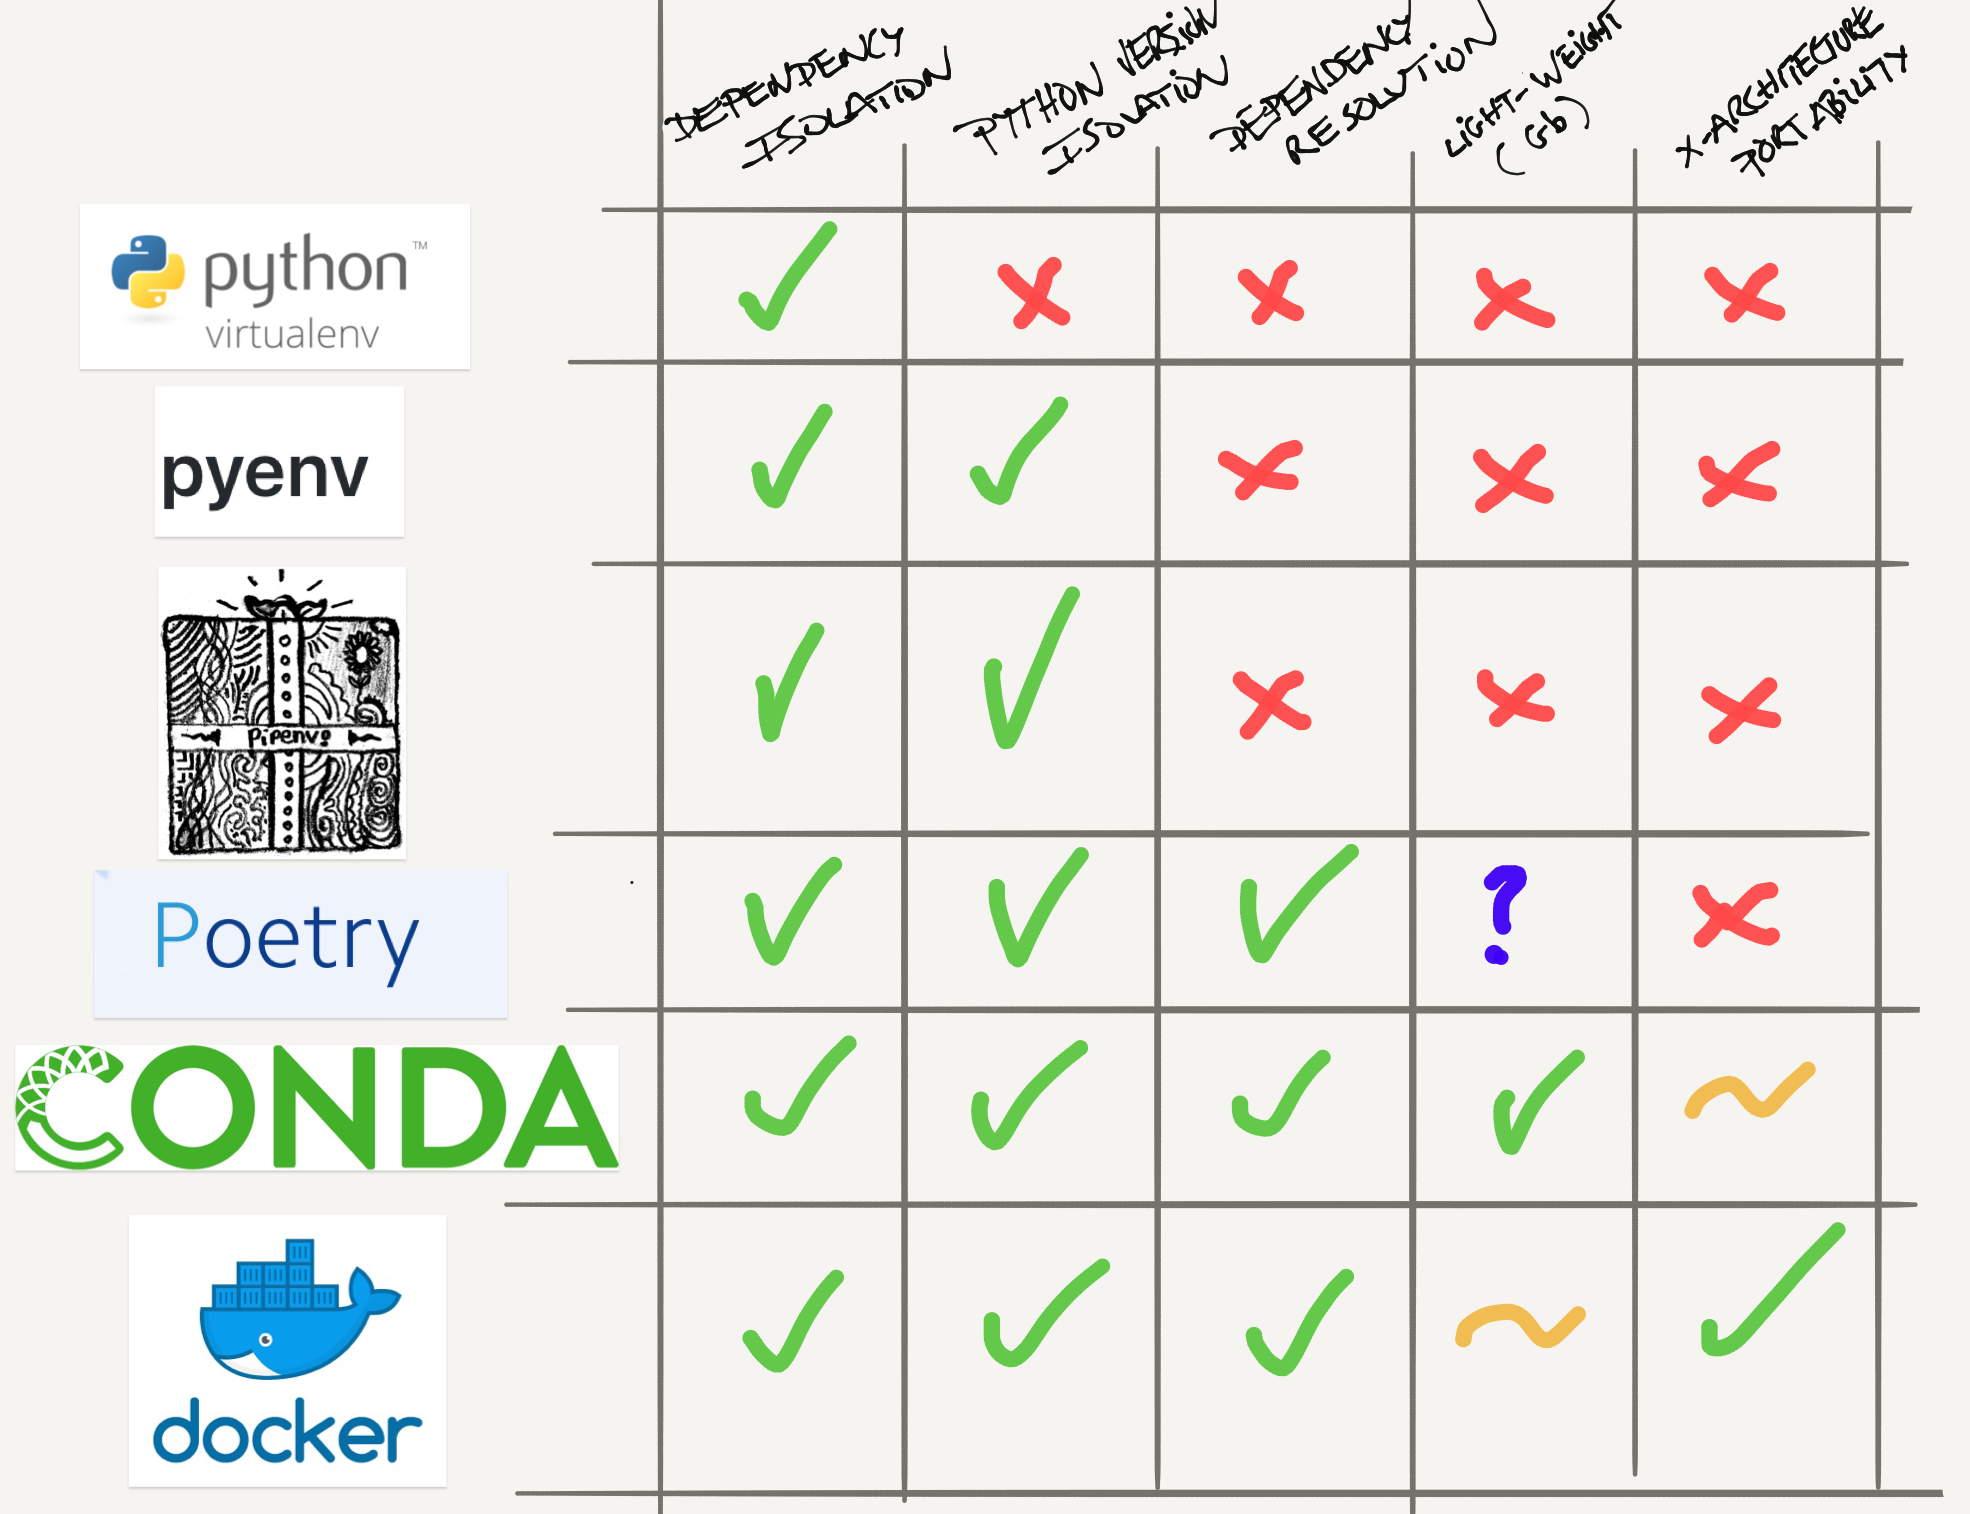 DEPENDENCY
ISOLATION
PYTHON VERSION
ISOLATION
DEPENDENCY
RESOLUTION
LIGHT-WEIGHT
(Gb)
X-ARCHITECTURE
PORTABILITY
python™
virtualenv
pyenv
Pipenv
Poetry
CONDA
docker